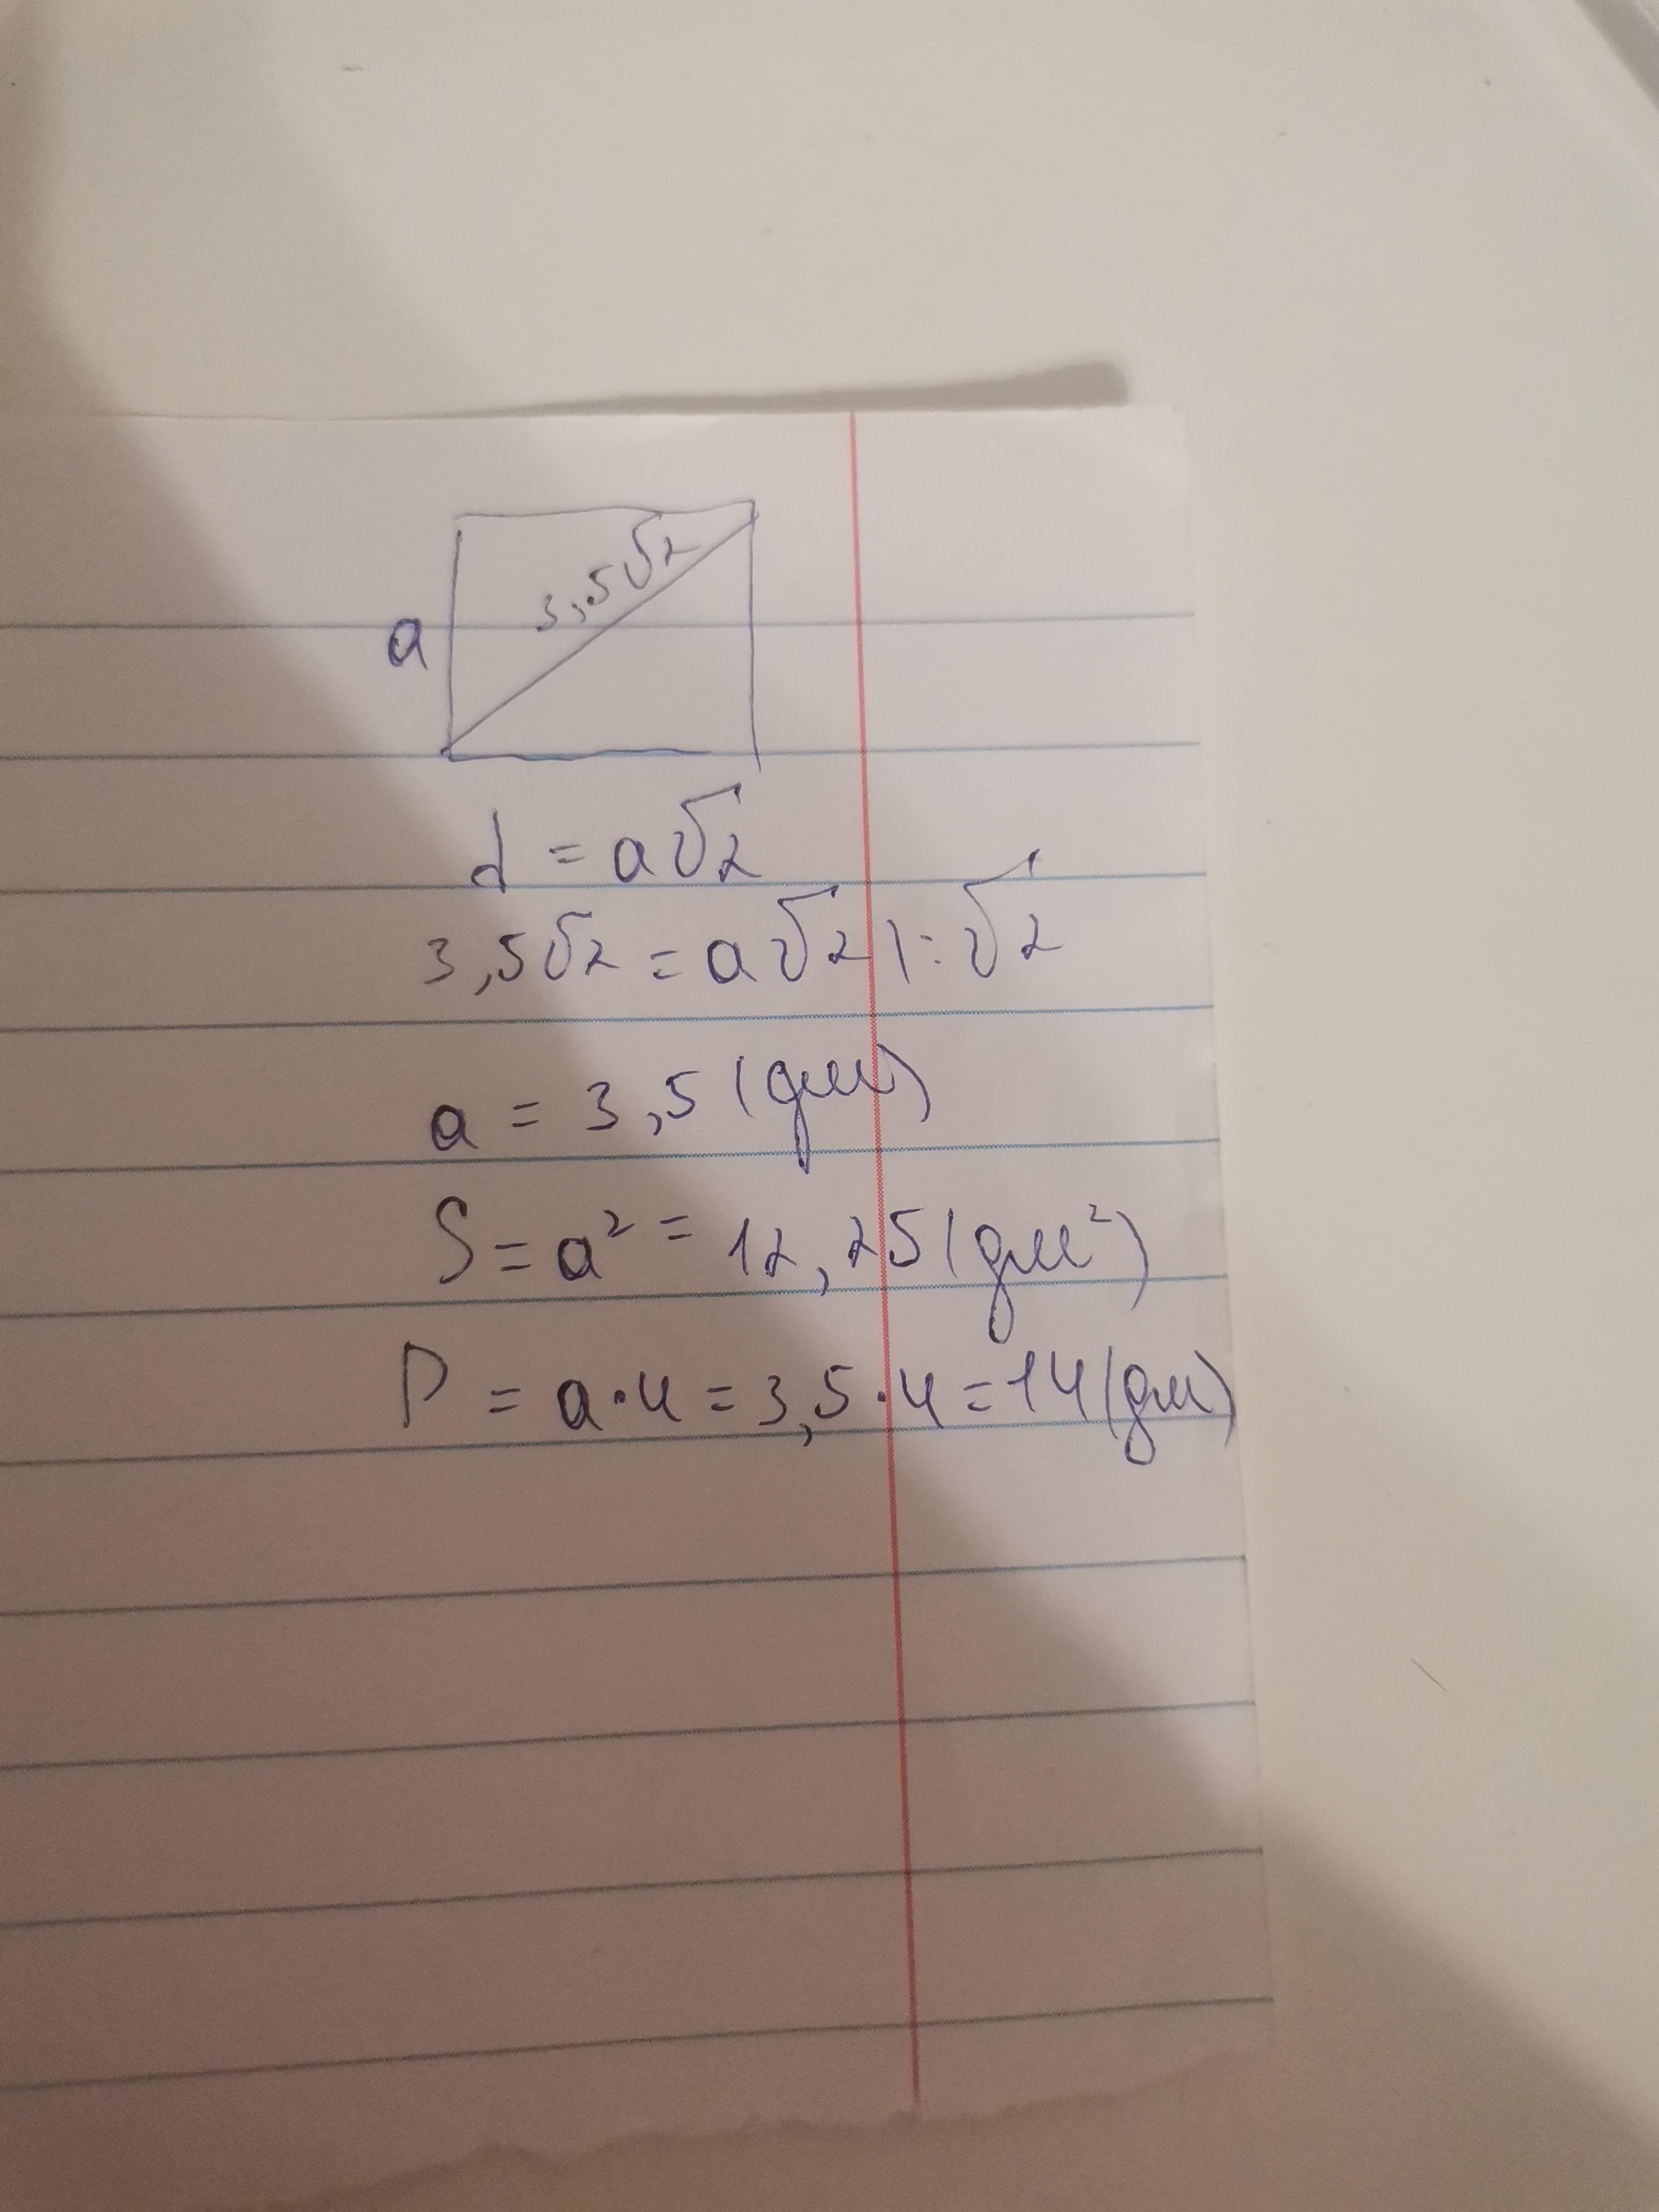 3,5√2
a
d = a√2
3,5√2 = a√2 |:√2
a = 3,5 (дм)
S = a² = 12,25 (дм²)
P = a·4 = 3,5·4 = 14 (дм)